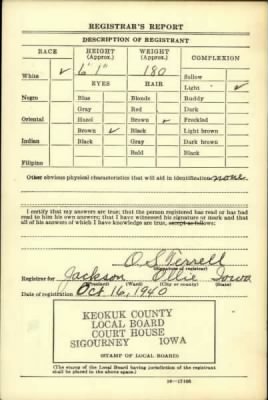 REGISTRAR'S REPORT
DESCRIPTION OF REGISTRANT
RACE HEIGHT (Approx.) WEIGHT (Approx.) COMPLEXION
White ✓ 6' 1" 180 Sallow
EYES HAIR Light ✓
Negro Blue Blonde Ruddy
Gray Red Dark
Oriental Hazel Brown ✓ Freckled
Brown ✓ Black Light brown
Indian Black Gray Dark brown
Bald Black
Filipino
Other obvious physical characteristics that will aid in identification none
I certify that my answers are true; that the person registered has read or has had
read to him his own answers; that I have witnessed his signature or mark and that
all of his answers of which I have knowledge are true, except as follows:
O. S. Terrell
(Signature of registrar)
Registrar for Jackson Ollie Iowa
(Precinct) (Ward) (City or county) (State)
Date of registration Oct. 16, 1940
KEOKUK COUNTY
LOCAL BOARD
COURT HOUSE
SIGOURNEY IOWA
(STAMP OF LOCAL BOARD)
(The stamp of the Local Board having jurisdiction of the registrant
shall be placed in the above space.)